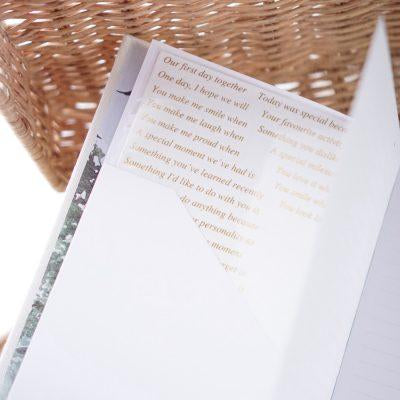 Our first day together
One day, I hope we will
You make me smile when
You make me laugh when
You make me proud when
A special moment we've had is
Something you've learned recently
Something I'd like to do with you is
do anything because
personality
moment
Today was special
Your favourite
Something you
A special
You love it
You smile
You look